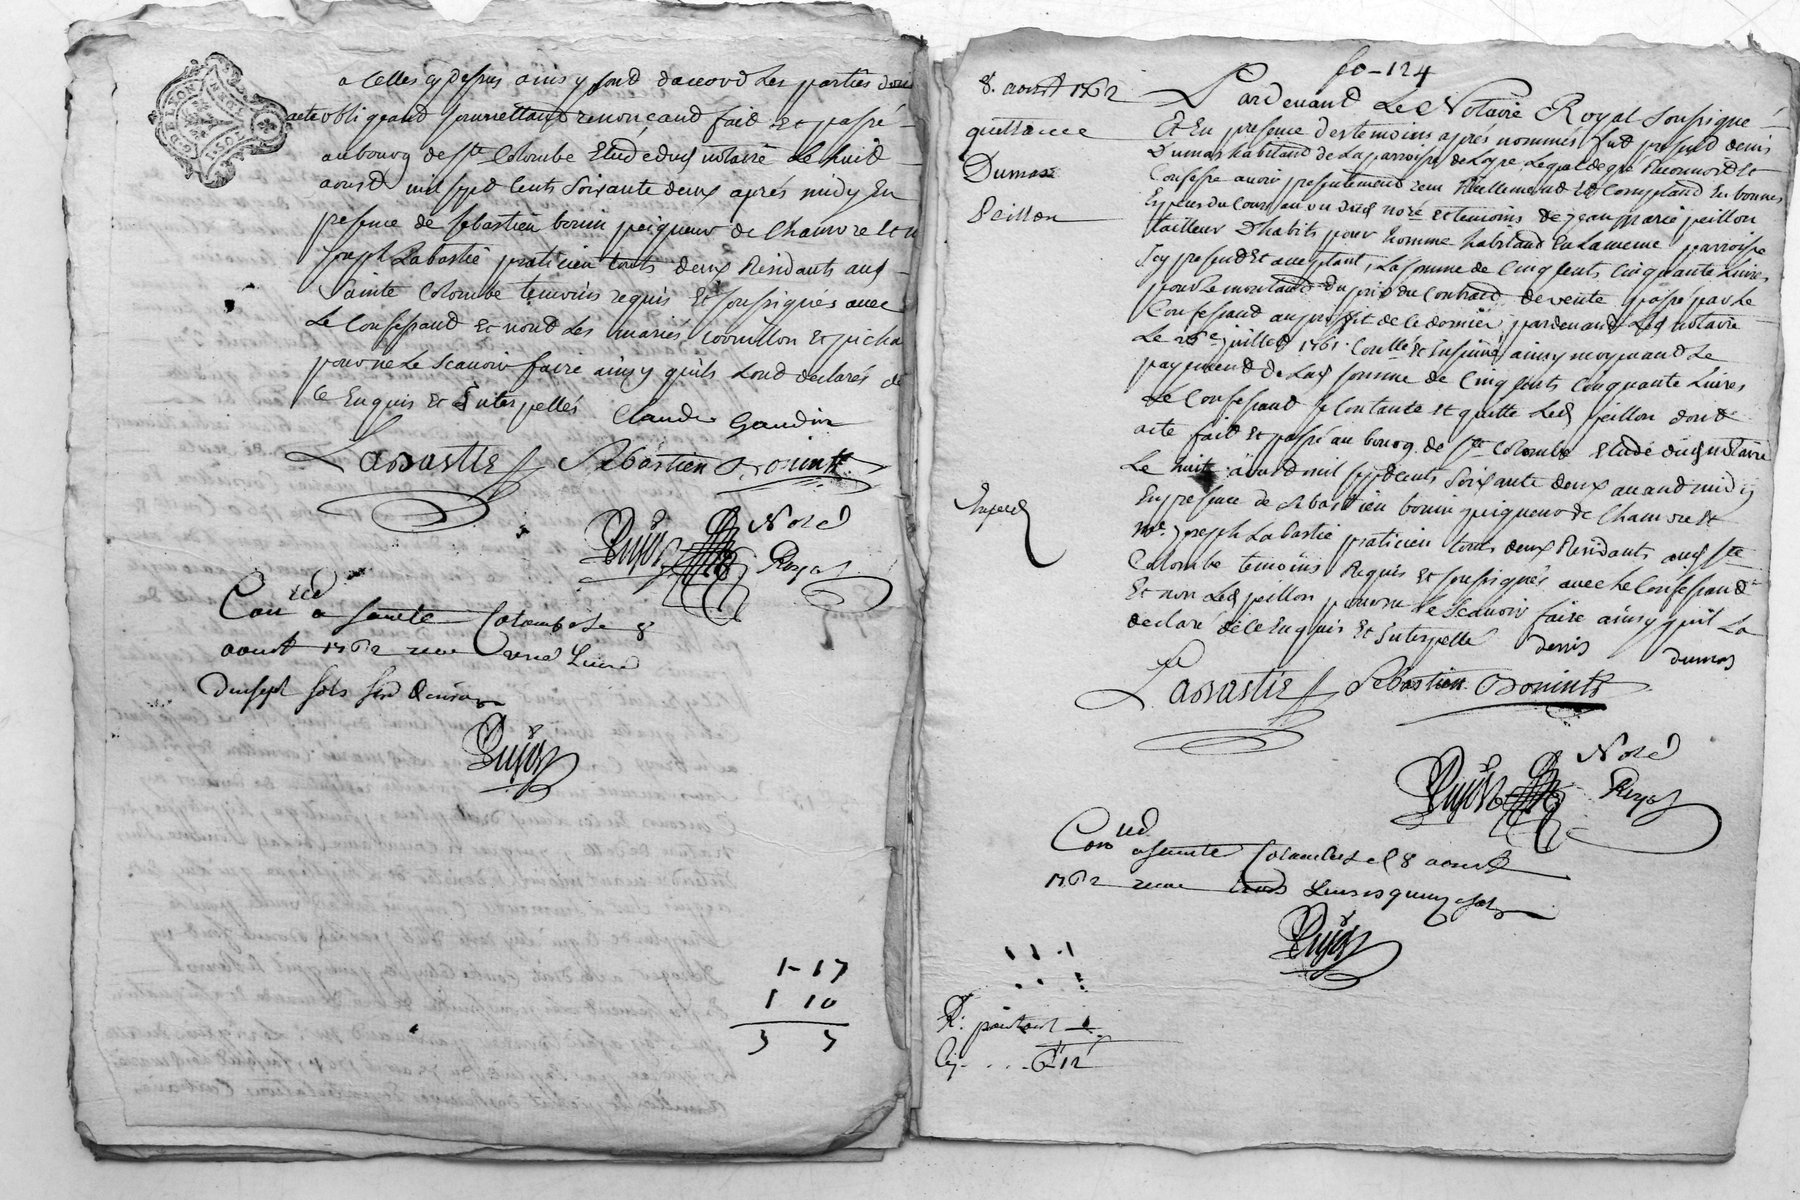 a Celles cy dessus ainsy sont daccord Les parties dont
acte obligeant soumettant renonçeand fait Et passé
au bourg de Ste Colombe Etude dud notaire Le huit
aoust mil sept Cents Soixante deux aprés midy En
presence de Sebastien bonin peigneur de Chanvre Et
Joseph Labastie praticien touts deux Residants aud
Sainte Colombe temoins requis Et soussignés avec
Le Confessand Et nond Les mariés
pour ne Le Scavoir faire ainsy quils Lond declarés de
Ce Enquis Et Interpellés
Claude Gaudin
Labastie Sebastien Bonint
Pujos Nore
Royal
Conlled a sainte Colombe Le 8
aoust 1762 recu une Livre
dixsept sols
Pujos
1-17
1 10
3 7
fo-124
8. aoust 1762
quittance
Dumas
Peillon
Pardevand Le Notaire Royal soussigné
Et En presence des temoins aprés nommés fut present denis
Dumas habitand de La parroisse de Loyre Lequel de gré Reconnoit Et
Confesse avoir presentement recu Reellement Et Comptand En bonnes
Especes du Cours au vu dud nore et temoins de jean marie peillon
tailleur Dhabits pour homme habitand En La meme parroisse
Icy present Et acceptant, La somme de Cinq Cents Cinquante Livres
pour Le montand du prix du Contract de vente passé par Le
Confessand au profit de Ce dernier pardevand Led notaire
Le 26e juillet 1761 Conllé Et Insinué ainsy moyenand Le
payement de Lad somme de Cinq Cents Cinquante Livres
Le Confessand se Contante Et quitte Led peillon dont
acte fait Et passé au bourg de Ste Colombe Etude dud notaire
Le huit aoust mil sept Cents Soixante deux avand midy
En presence de Sebastien bonin peigneur de Chanvre Et
Me Joseph Labastie praticien touts deux Residants aud Ste
Colombe temoins Requis Et soussignés avec Le Confessand
Et non Led peillon pour ne Le Scavoir faire ainsy quil La
declaré de Ce Enquis Et Interpellé
denis dumas
Expedié
Labastie Sebastien Bonint
Pujos Nore
Royal
Conlled a sainte Colombe Le 8 aoust
1762 recu trois Livres quinze sols
Pujos
6 12